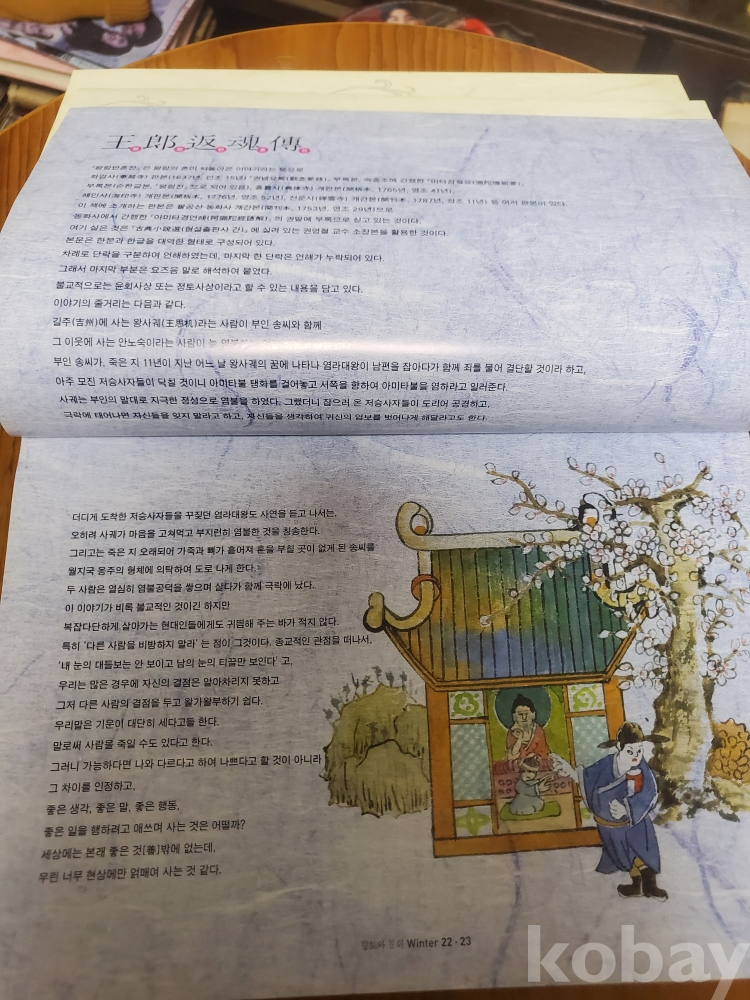 王郎返魂傳
『왕랑반혼전』은 왕랑의 혼이 되돌아온 이야기라는 뜻으로
화엄사(華嚴寺) 판본(1637년, 인조 15년)
부록본(순한글본, 『왕랑전』으로 되어 있음), 흥률사 개판본(開板本, 1765년, 영조 41년),
해인사(海印寺) 개판본(開板本, 1776년, 영조 52년), 선운사 개간본(開刊本, 1787년, 정조 11년) 등 여러 판본이 있다.
이 책에 소개하는 판본은 팔공산 동화사 개간본(開刊本, 1753년, 영조 29년)으로
동화사에서 간행한 『아미타경언해(阿彌陀經諺解)』의 권말에 부록으로 실고 있는 것이다.
여기 실은 것은 『古典小說選(형설출판사 간)』에 실려 있는 권영철 교수 소장본을 활용한 것이다.
본문은 한문과 한글을 대역한 형태로 구성되어 있다.
차례로 단락을 구분하여 언해하였는데, 마지막 한 단락은 언해가 누락되어 있다.
그래서 마지막 부분은 요즈음 말로 해석하여 붙였다.
불교적으로는 윤회사상 또는 정토사상이라고 할 수 있는 내용을 담고 있다.
이야기의 줄거리는 다음과 같다.
길주(吉州)에 사는 왕사궤(王思机)라는 사람이 부인 송씨와 함께
그 이웃에 사는 안노숙이라는 사람이
부인 송씨가, 죽은 지 11년이 지난 어느 날 왕사궤의 꿈에 나타나 염라대왕이 남편을 잡아다가 함께 죄를 물어 결단할 것이라 하고,
아주 모진 저승사자들이 닥칠 것이니 아미타불 탱화를 걸어놓고 서쪽을 향하여 아미타불을 염하라고 일러준다.
사궤는 부인의 말대로 지극한 정성으로 염불을 하였다. 그랬더니 잡으러 온 저승사자들이 도리어 공경하고,
극락에 태어나면 자신들을 잊지 말라고 하고, 자신들을 생각하여 귀신의 업보를 벗어나게 해달라고도 한다.
더디게 도착한 저승사자들을 꾸짖던 염라대왕도 사연을 듣고 나서는,
오히려 사궤가 마음을 고쳐먹고 부지런히 염불한 것을 칭송한다.
그리고는 죽은 지 오래되어 가죽과 뼈가 흩어져 혼을 부칠 곳이 없게 된 송씨를
월지국 옹주의 형체에 의탁하여 도로 나게 한다.
두 사람은 열심히 염불공덕을 쌓으며 살다가 함께 극락에 났다..
이 이야기가 비록 불교적인 것이긴 하지만
복잡다단하게 살아가는 현대인들에게도 귀띔해 주는 바가 적지 않다.
특히 '다른 사람을 비방하지 말라' 는 점이 그것이다. 종교적인 관점을 떠나서,
'내 눈의 대들보는 안 보이고 남의 눈의 티끌만 보인다' 고,
우리는 많은 경우에 자신의 결점은 알아차리지 못하고
그저 다른 사람의 결점을 두고 왈가왈부하기 쉽다.
우리말은 기운이 대단히 세다고들 한다.
말로써 사람을 죽일 수도 있다고 한다.
그러니 가능하다면 나와 다르다고 하여 나쁘다고 할 것이 아니라
그 차이를 인정하고,
좋은 생각, 좋은 말, 좋은 행동,
좋은 일을 행하려고 애쓰며 사는 것은 어떨까?
세상에는 본래 좋은 것[善]밖에 없는데,
우린 너무 현상에만 얽매여 사는 것 같다.
Winter 22·23
kobay